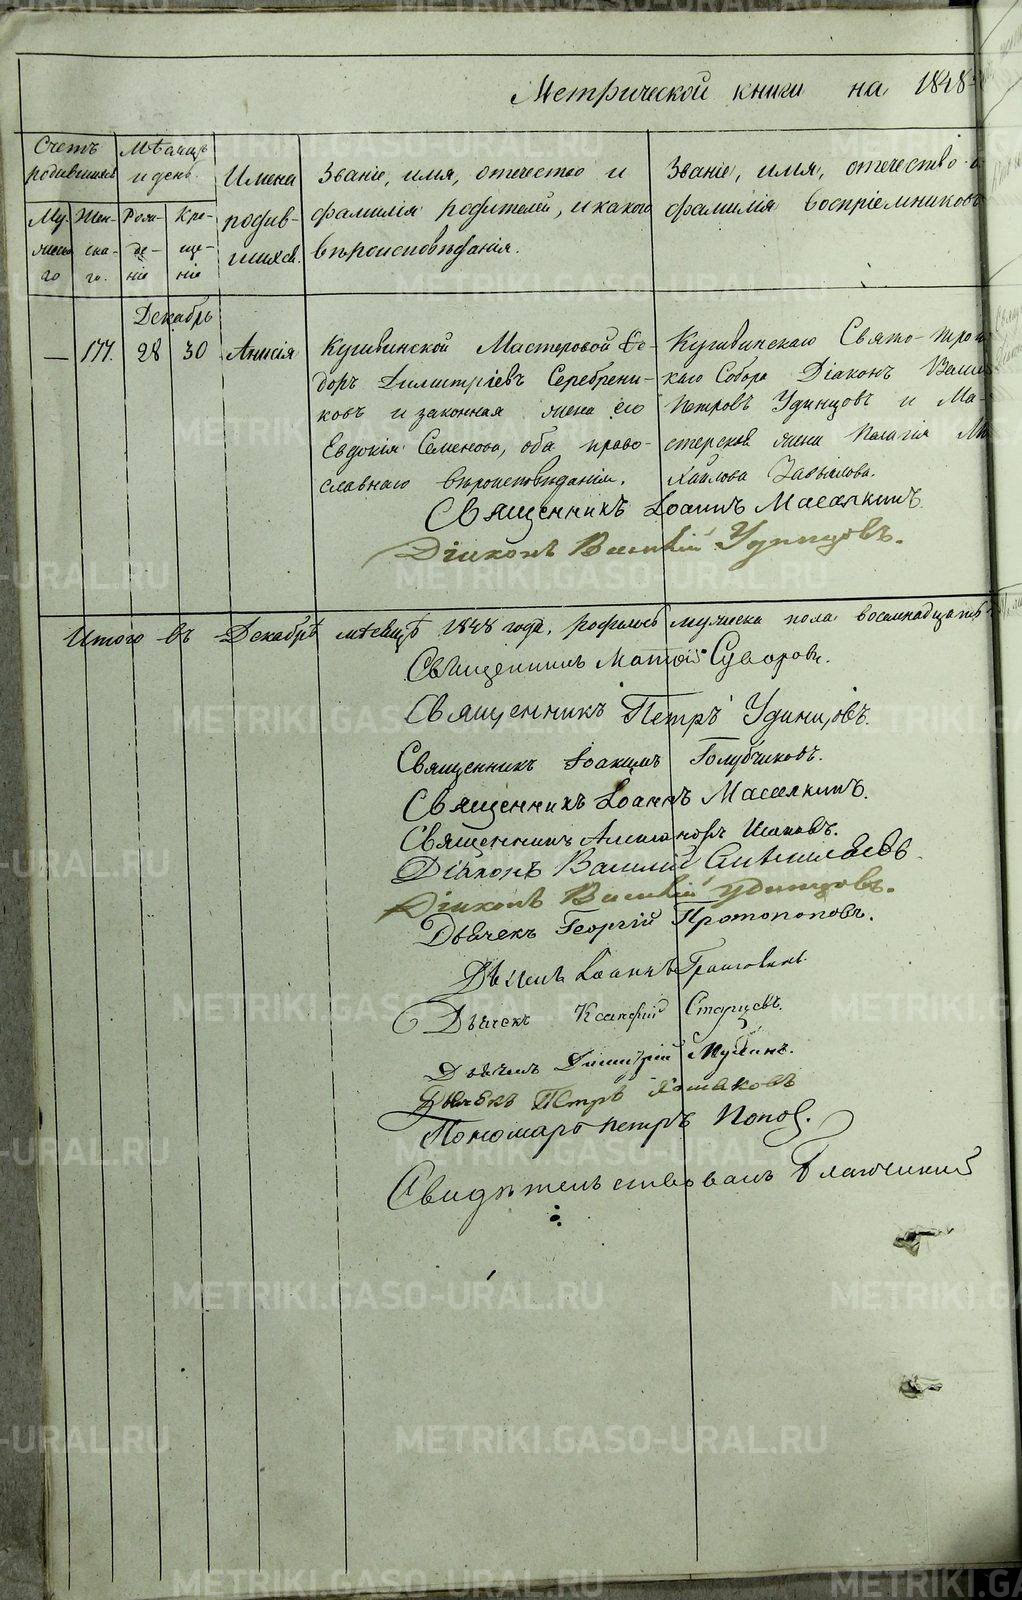 Метрической книги на 1848
Счетъ родившихся
Мѣсяцъ и день.
Мужескаго
Женскаго.
Рожденіе
Крещеніе
Имена родившихся.
Званіе, имя, отечество и
фамилія родителей, и какого
вѣроисповѣданія.
Званіе, имя, отечество и
фамилія воспріемниковъ
Декабрь
— 177. 28 30 Анисія
Кушвинской Мастеровой Ѳе-
доръ Димитріевъ Серебрени-
ковъ и законная жена его
Евдокія Семенова, оба право-
славнаго вѣроисповѣданія.
Кушвинскаго Свято-Трои
каго Собора Діаконъ Васил
Петровъ Удинцовъ и Ма-
стерская жена Пелагія Ми
хайлова Завьялова.
Священникъ Іоаннъ Масалкинъ.
Діаконъ Василій Удинцовъ.
Итого въ Декабрѣ мѣсяцѣ 1848 года, родилось мужеска пола восемнадцать
Священникъ Матөій Суворовъ.
Священникъ Петръ Удинцовъ.
Священникъ Іоакимъ Голубчиковъ.
Священникъ Іоаннъ Масалкинъ.
Священникъ Александръ
Діаконъ Василій
Діаконъ Василій Удинцовъ.
Дьячекъ Георгій Протопоповъ.
Дьячекъ Іоаннъ
Дьячекъ Старцевъ.
Дьячекъ Димитрій
Дьячекъ Петръ Хомяковъ
Пономарь Петръ Поповъ.
Свидѣтельствовалъ Благочинный
METRIKI.GASO-URAL.RU